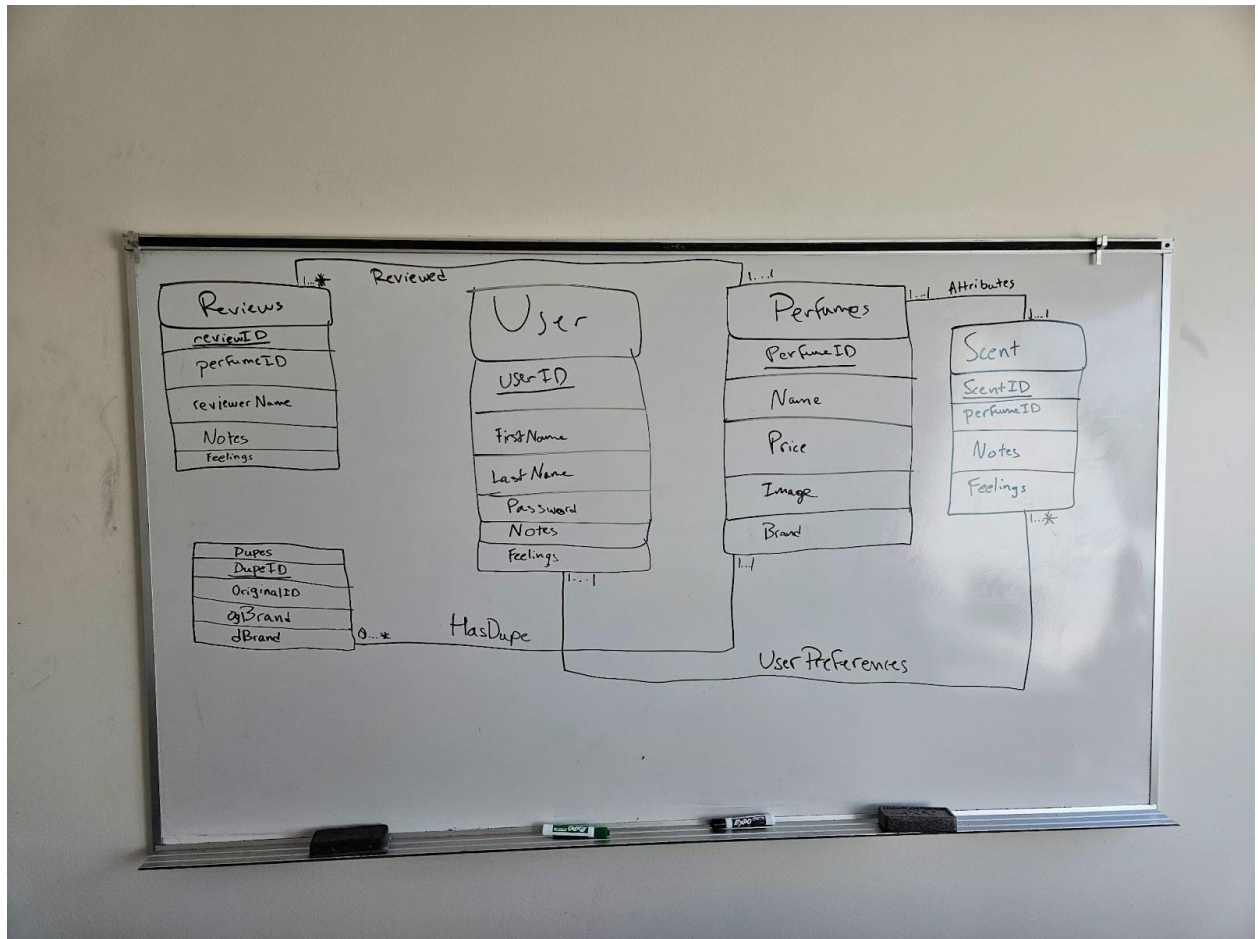 Reviewed
1...*
1...1
Reviews
reviewID
perfumeID
reviewerName
Notes
Feelings
User
userID
FirstName
LastName
Password
Notes
Feelings
1...1
Perfumes
PerfumeID
Name
Price
Image
Brand
1...1
1...1
Attributes
1...1
Scent
ScentID
perfumeID
Notes
Feelings
1...*
Dupes
DupeID
OriginalID
ogBrand
dBrand
0...*
HasDupe
UserPreferences
EXPO
EXPO